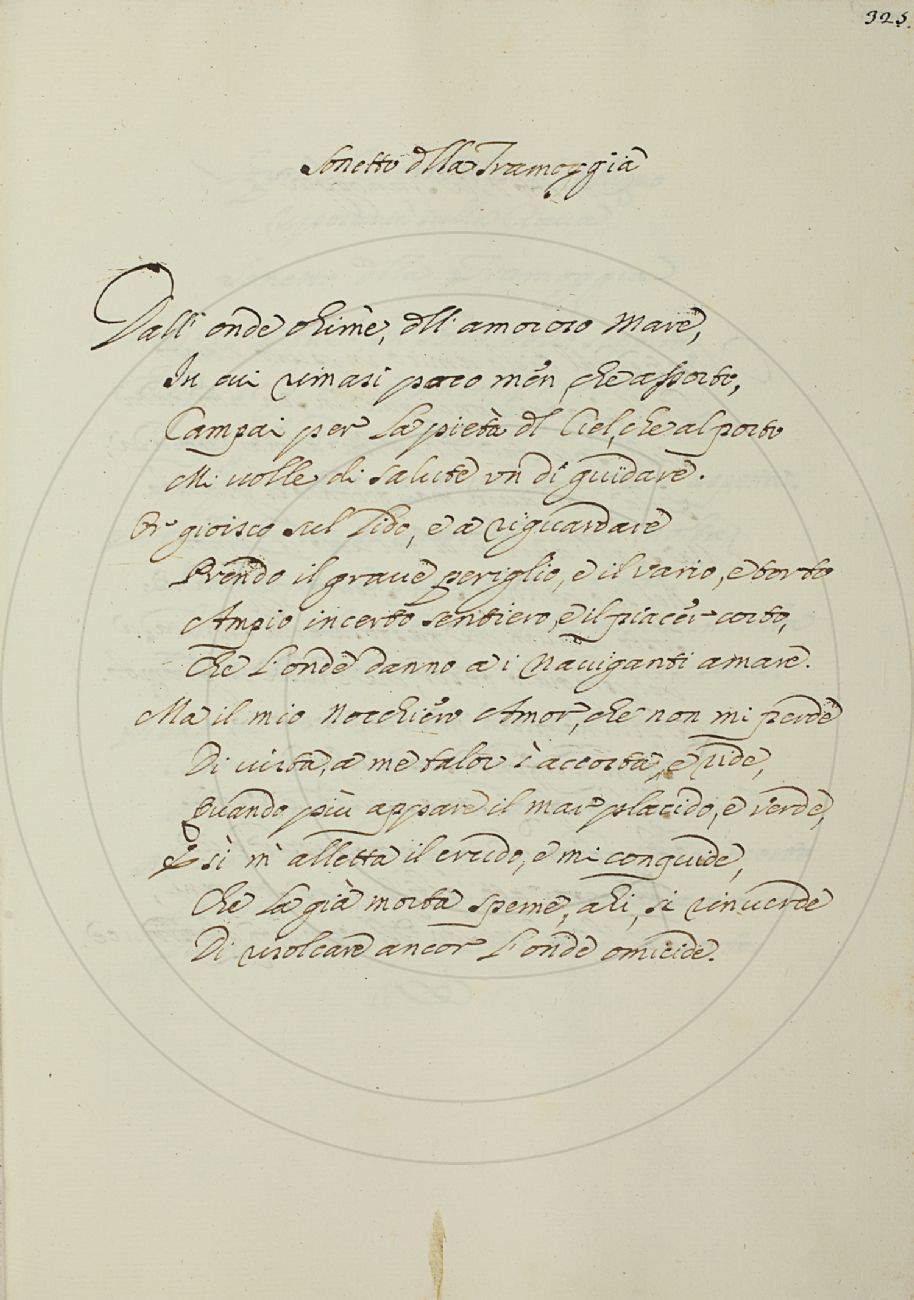 325.
Sonetto dlla Tramoggia
Dall' onde ohime, dll' amoroso Mare,
In cui rimasi poco men, che assorto,
Campai per la pietà dl Ciel, che al porto
Mi volle di salute un dì guidare.
Or gioisco sul Lido, e a riguardare
Prendo il grave periglio, e il vario, e torto
Ampio incerto sentiero, e il piacer corto,
Che l'onde danno a i Naviganti amare.
Ma il mio Nocchiero Amor, che non mi perde
Di vista, a me talor s'accosta, e ride,
Quando più appare il mar placido, e verde,
E sì m'alletta il crudo, e mi conquide,
Che la già morta speme, ahi, si rinverde
Di risolcare ancor l'onde omicide.